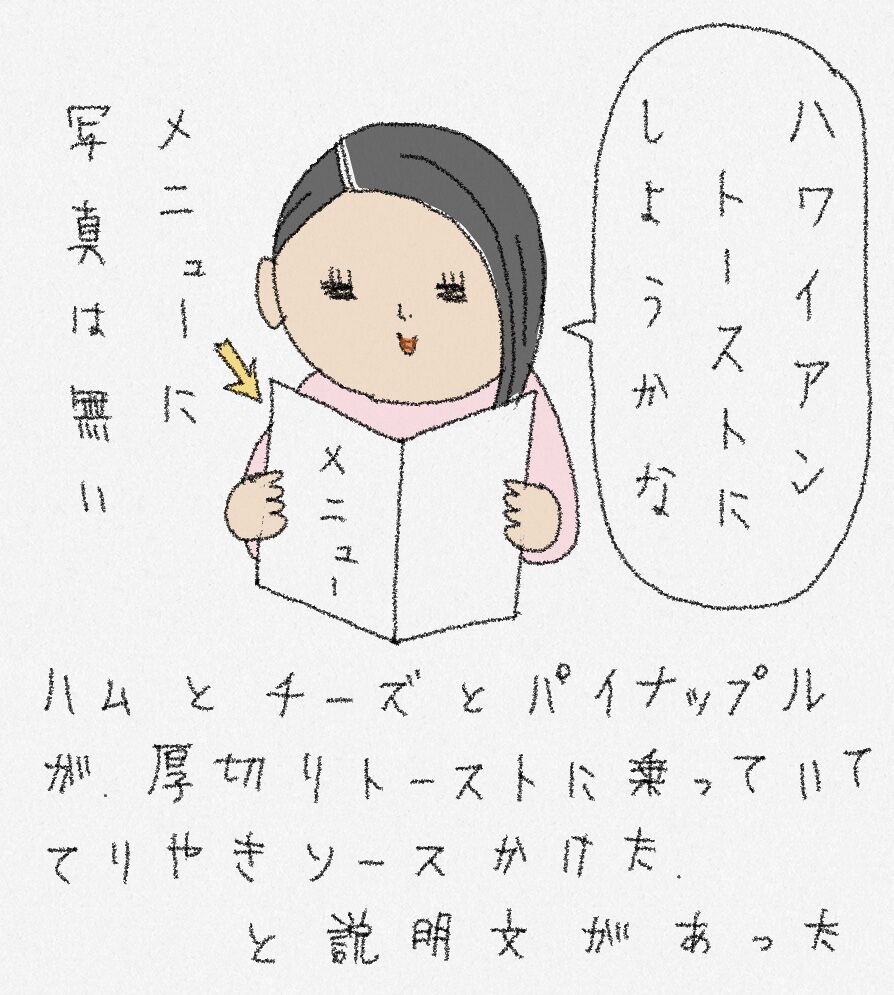 ハワイアン
トーストに
しようかな
メニューに
写真は無い
メニュー
ハムとチーズとパイナップル
が.厚切りトーストに乗っていて
てりやきソースかけた.
と説明文があった